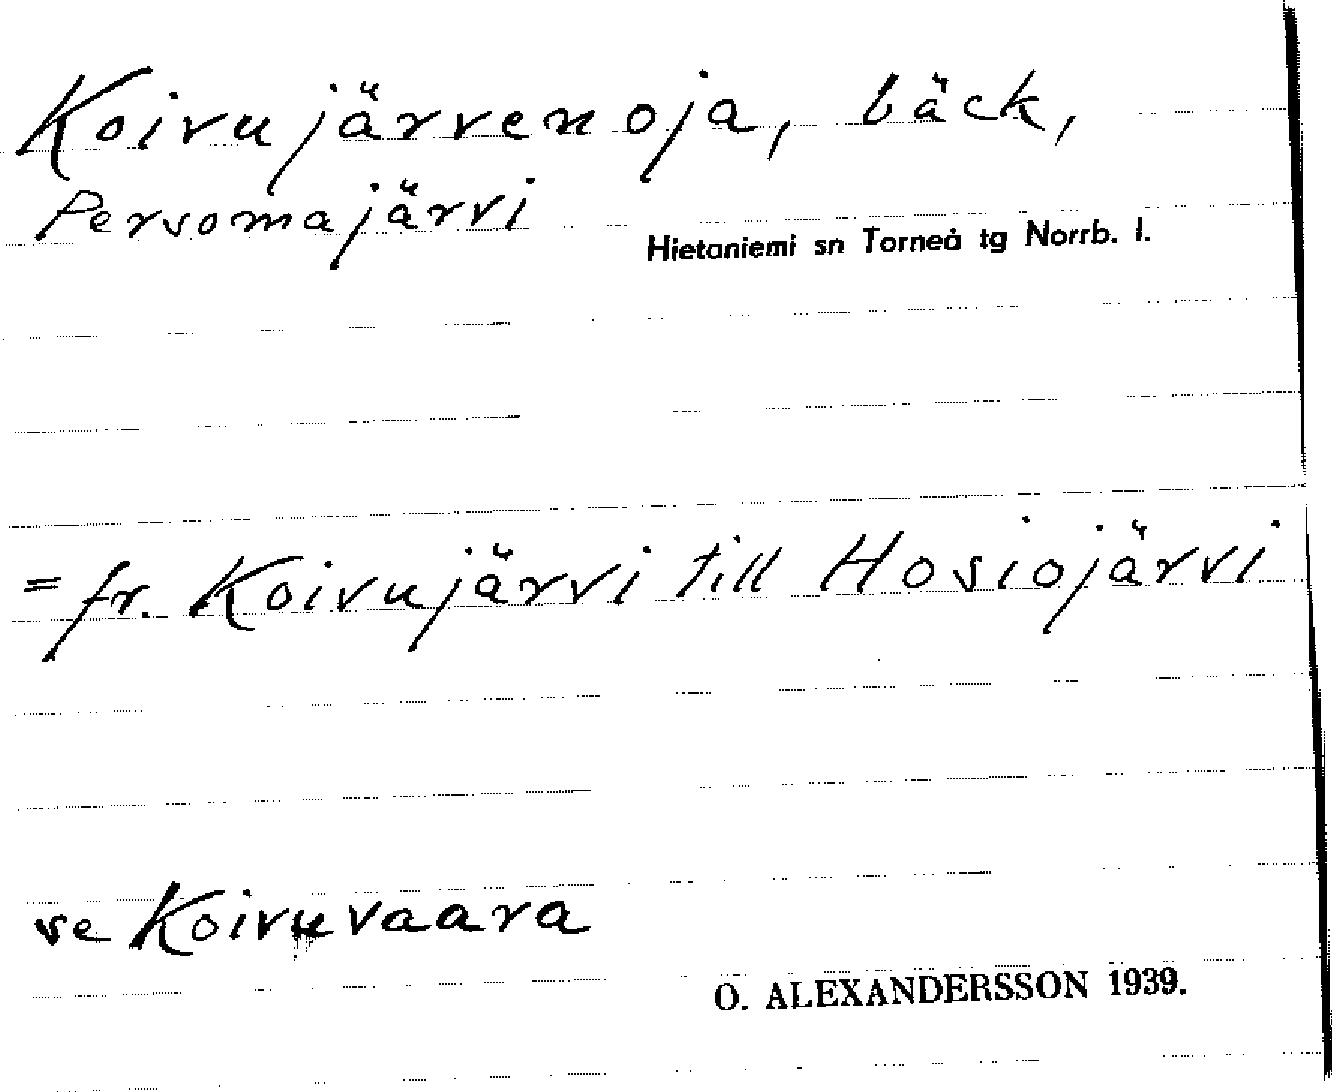 Koivujärvenoja, bäck,
Persomajärvi
Hietaniemi sn Torneå tg Norrb. l.
= fr. Koivujärvi till Hosiojärvi
se Koivuvaara
O. ALEXANDERSSON 1939.